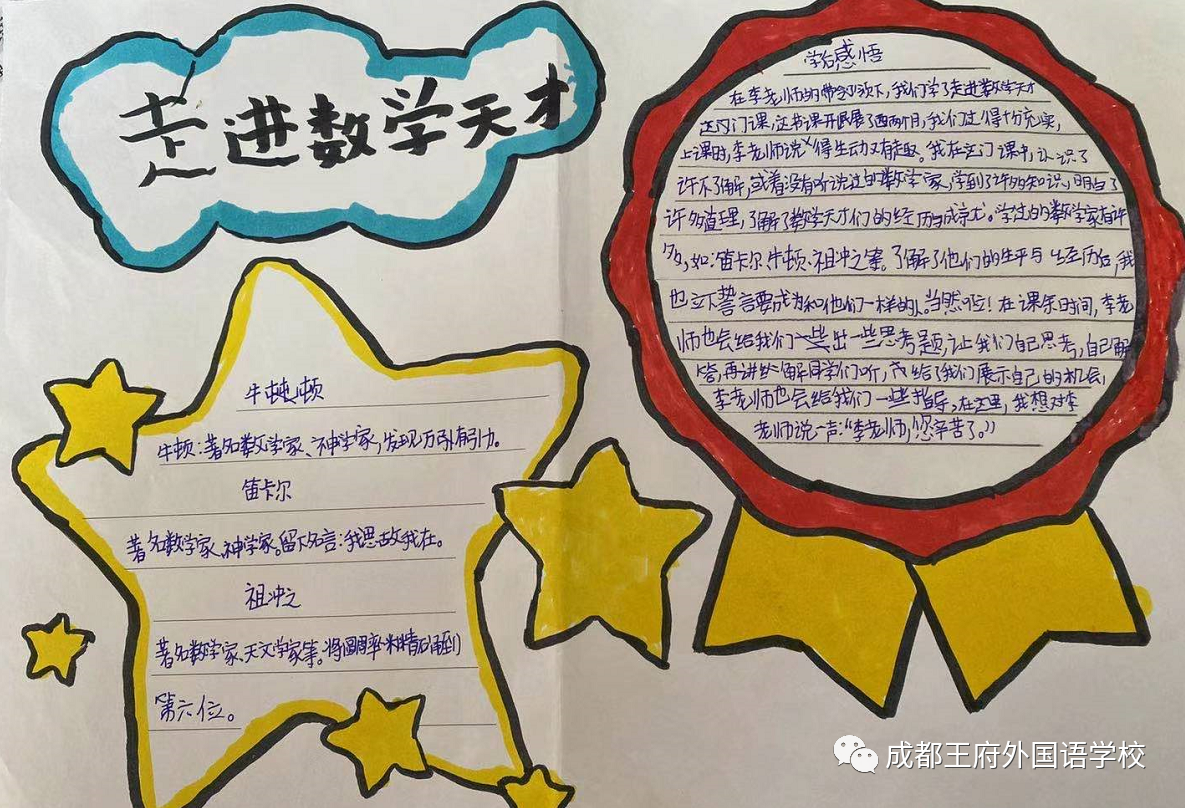 走进数学天才
牛顿
牛顿：著名数学家、神学家，发现万引有引力。
笛卡尔
著名数学家、神学家。留下名言：我思故我在。
祖冲之
著名数学家、天文学家等。将圆周率精确到
第六位。
学后感悟
在李老师的带领下，我们学了走进数学天才
这门课，这书课开展了两个月，我们过得十分充实，
上课时，李老师说得生动又有趣。我在这门课中，认识了
许不了解，或着没有听说过的数学家，学到了许多知识，明白了
许多道理，了解了数学天才们的经历与成就。学过的数学家有许
多，如：笛卡尔、牛顿、祖冲之等。了解了他们的生平与经历后，我
也立下誓言要成为和他们一样的人。当然啦！在课余时间，李老
师也会给我们出一些思考题，让我们自己思考，自己解
答，再讲给同学们听，给了我们展示自己的机会，
李老师也会给我们一些指导，在这里，我想对李
老师说一声：“李老师，您辛苦了。”
成都王府外国语学校